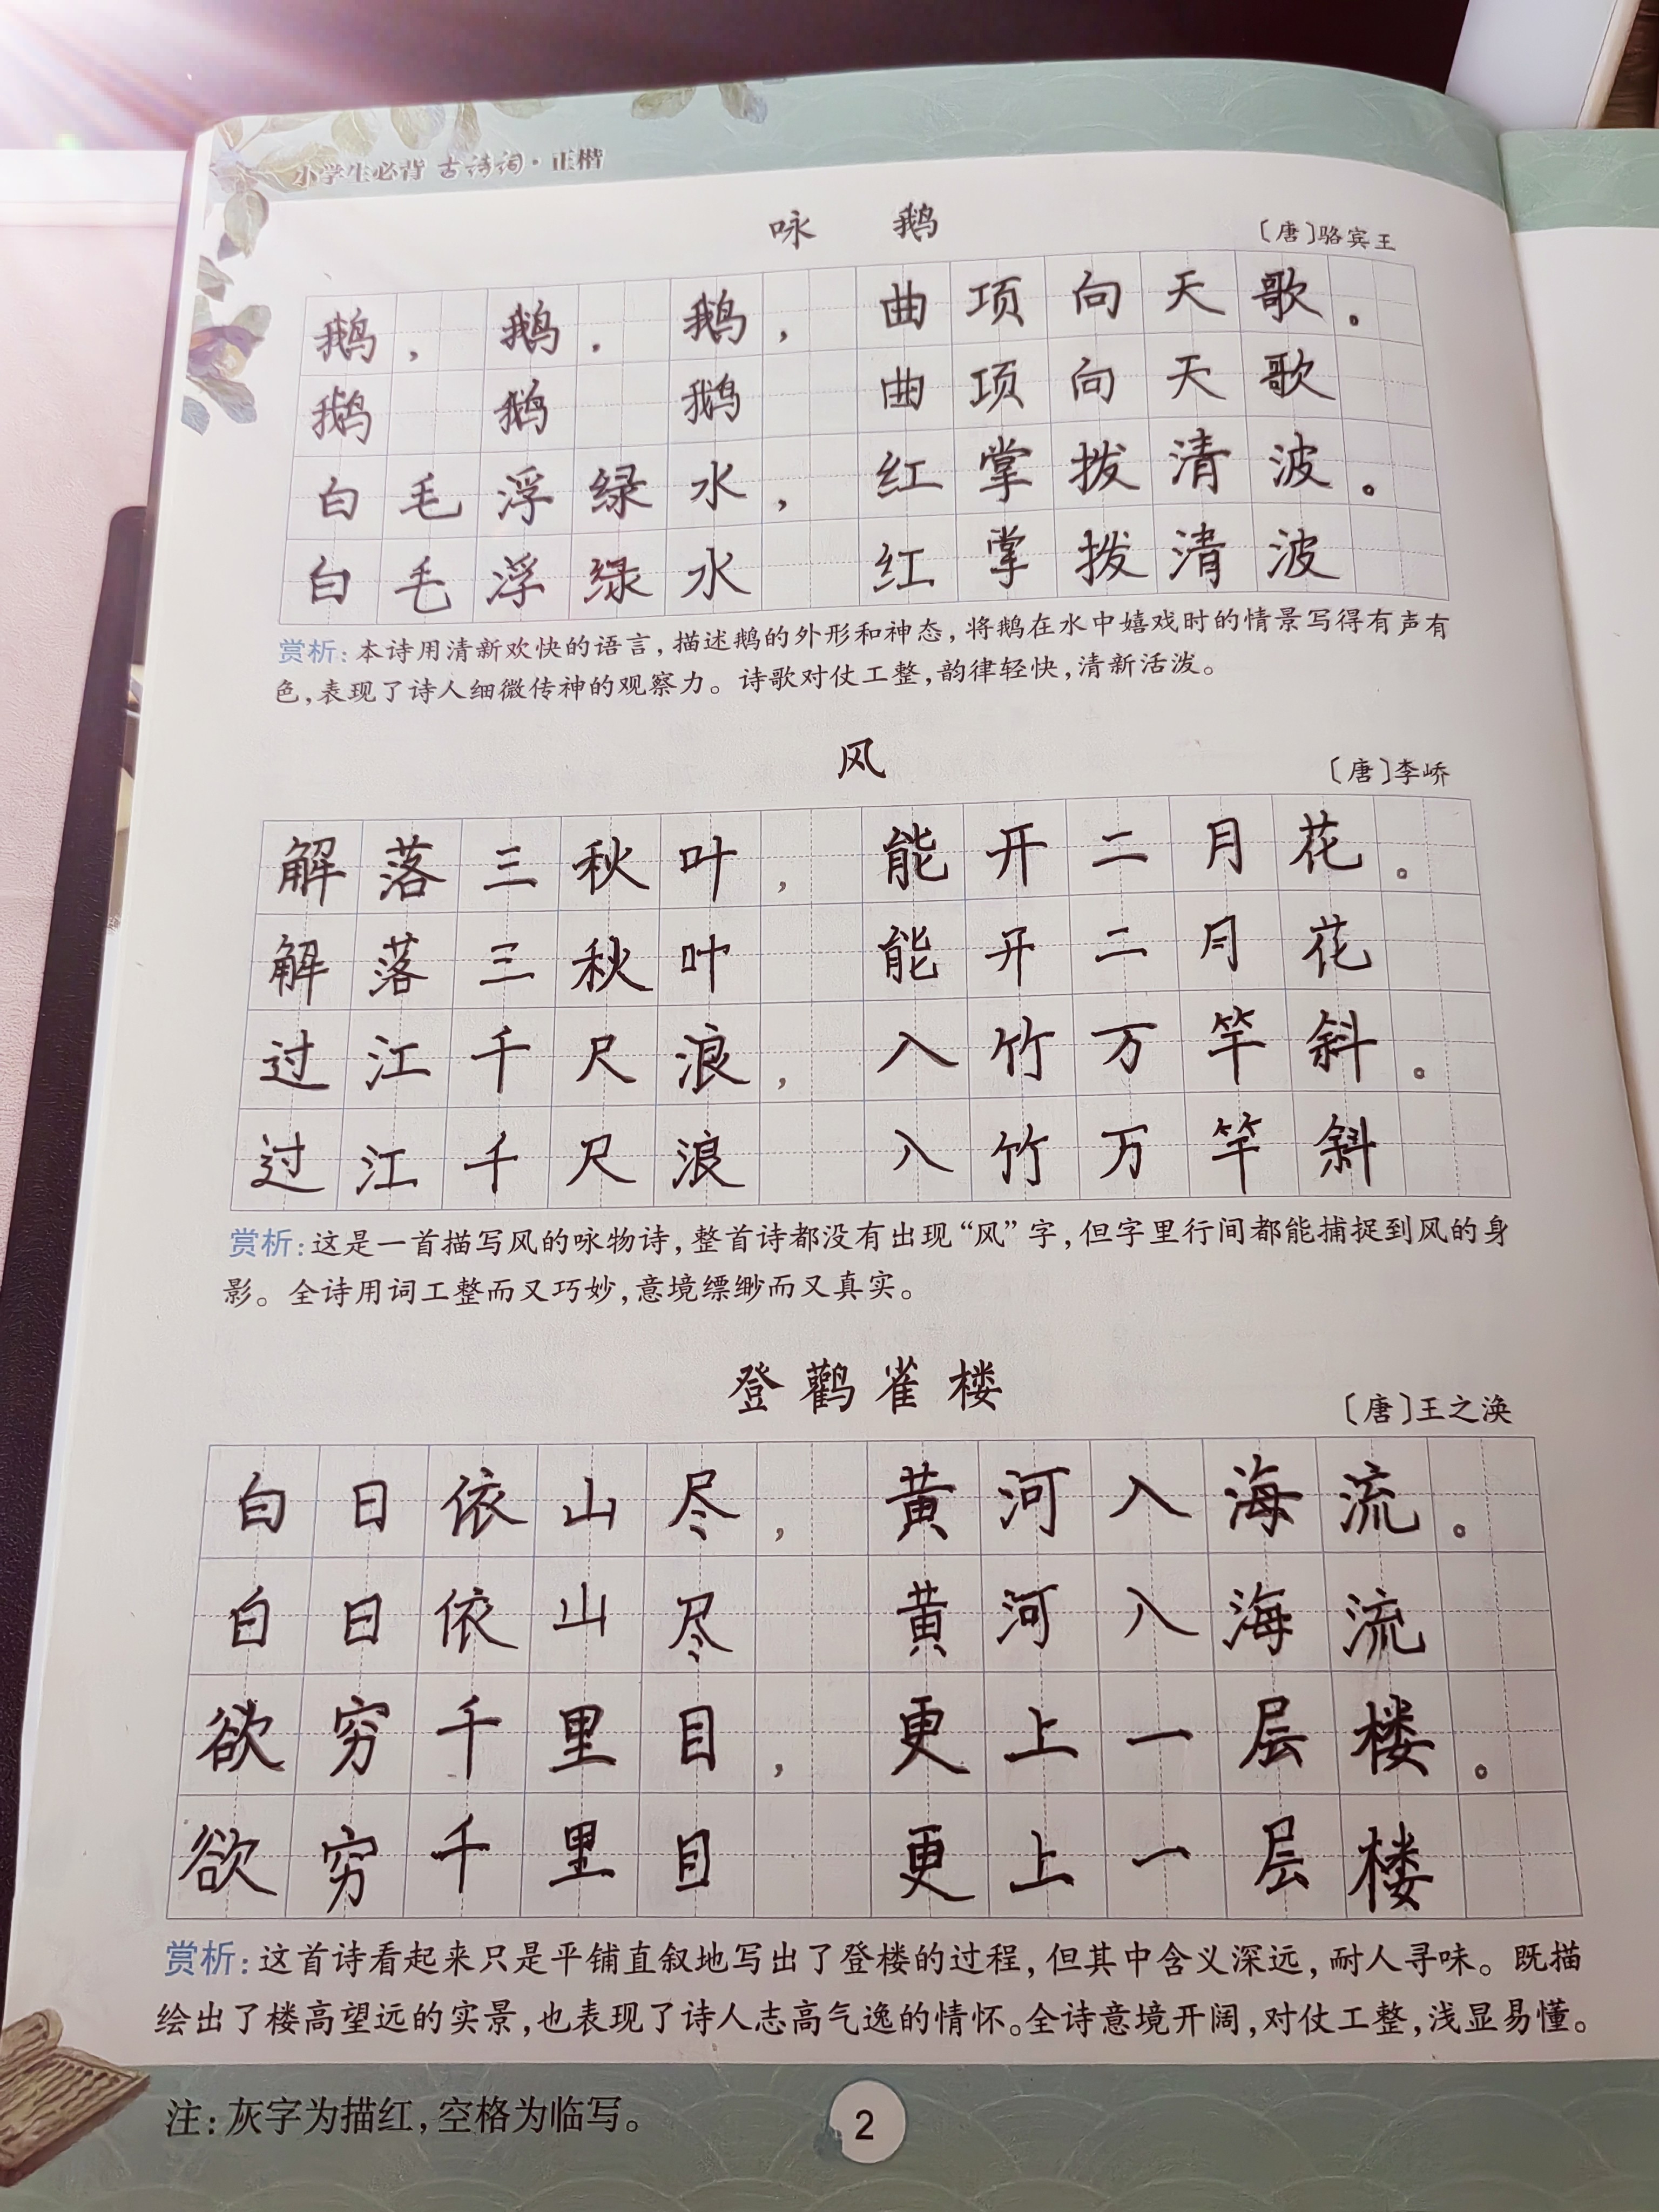 小学生必背 古诗词·正楷
咏 鹅
〔唐〕骆宾王
鹅，鹅，鹅，曲项向天歌。
鹅 鹅 鹅 曲项向天歌
白毛浮绿水，红掌拨清波。
白毛浮绿水 红掌拨清波
赏析：本诗用清新欢快的语言，描述鹅的外形和神态，将鹅在水中嬉戏时的情景写得有声有
色，表现了诗人细微传神的观察力。诗歌对仗工整，韵律轻快，清新活泼。
风
〔唐〕李峤
解落三秋叶，能开二月花。
解落三秋叶 能开二月花
过江千尺浪，入竹万竿斜。
过江千尺浪 入竹万竿斜
赏析：这是一首描写风的咏物诗，整首诗都没有出现“风”字，但字里行间都能捕捉到风的身
影。全诗用词工整而又巧妙，意境缥缈而又真实。
登鹳雀楼
〔唐〕王之涣
白日依山尽，黄河入海流。
白日依山尽 黄河入海流
欲穷千里目，更上一层楼。
欲穷千里目 更上一层楼
赏析：这首诗看起来只是平铺直叙地写出了登楼的过程，但其中含义深远，耐人寻味。既描
绘出了楼高望远的实景，也表现了诗人志高气逸的情怀。全诗意境开阔，对仗工整，浅显易懂。
注：灰字为描红，空格为临写。
2